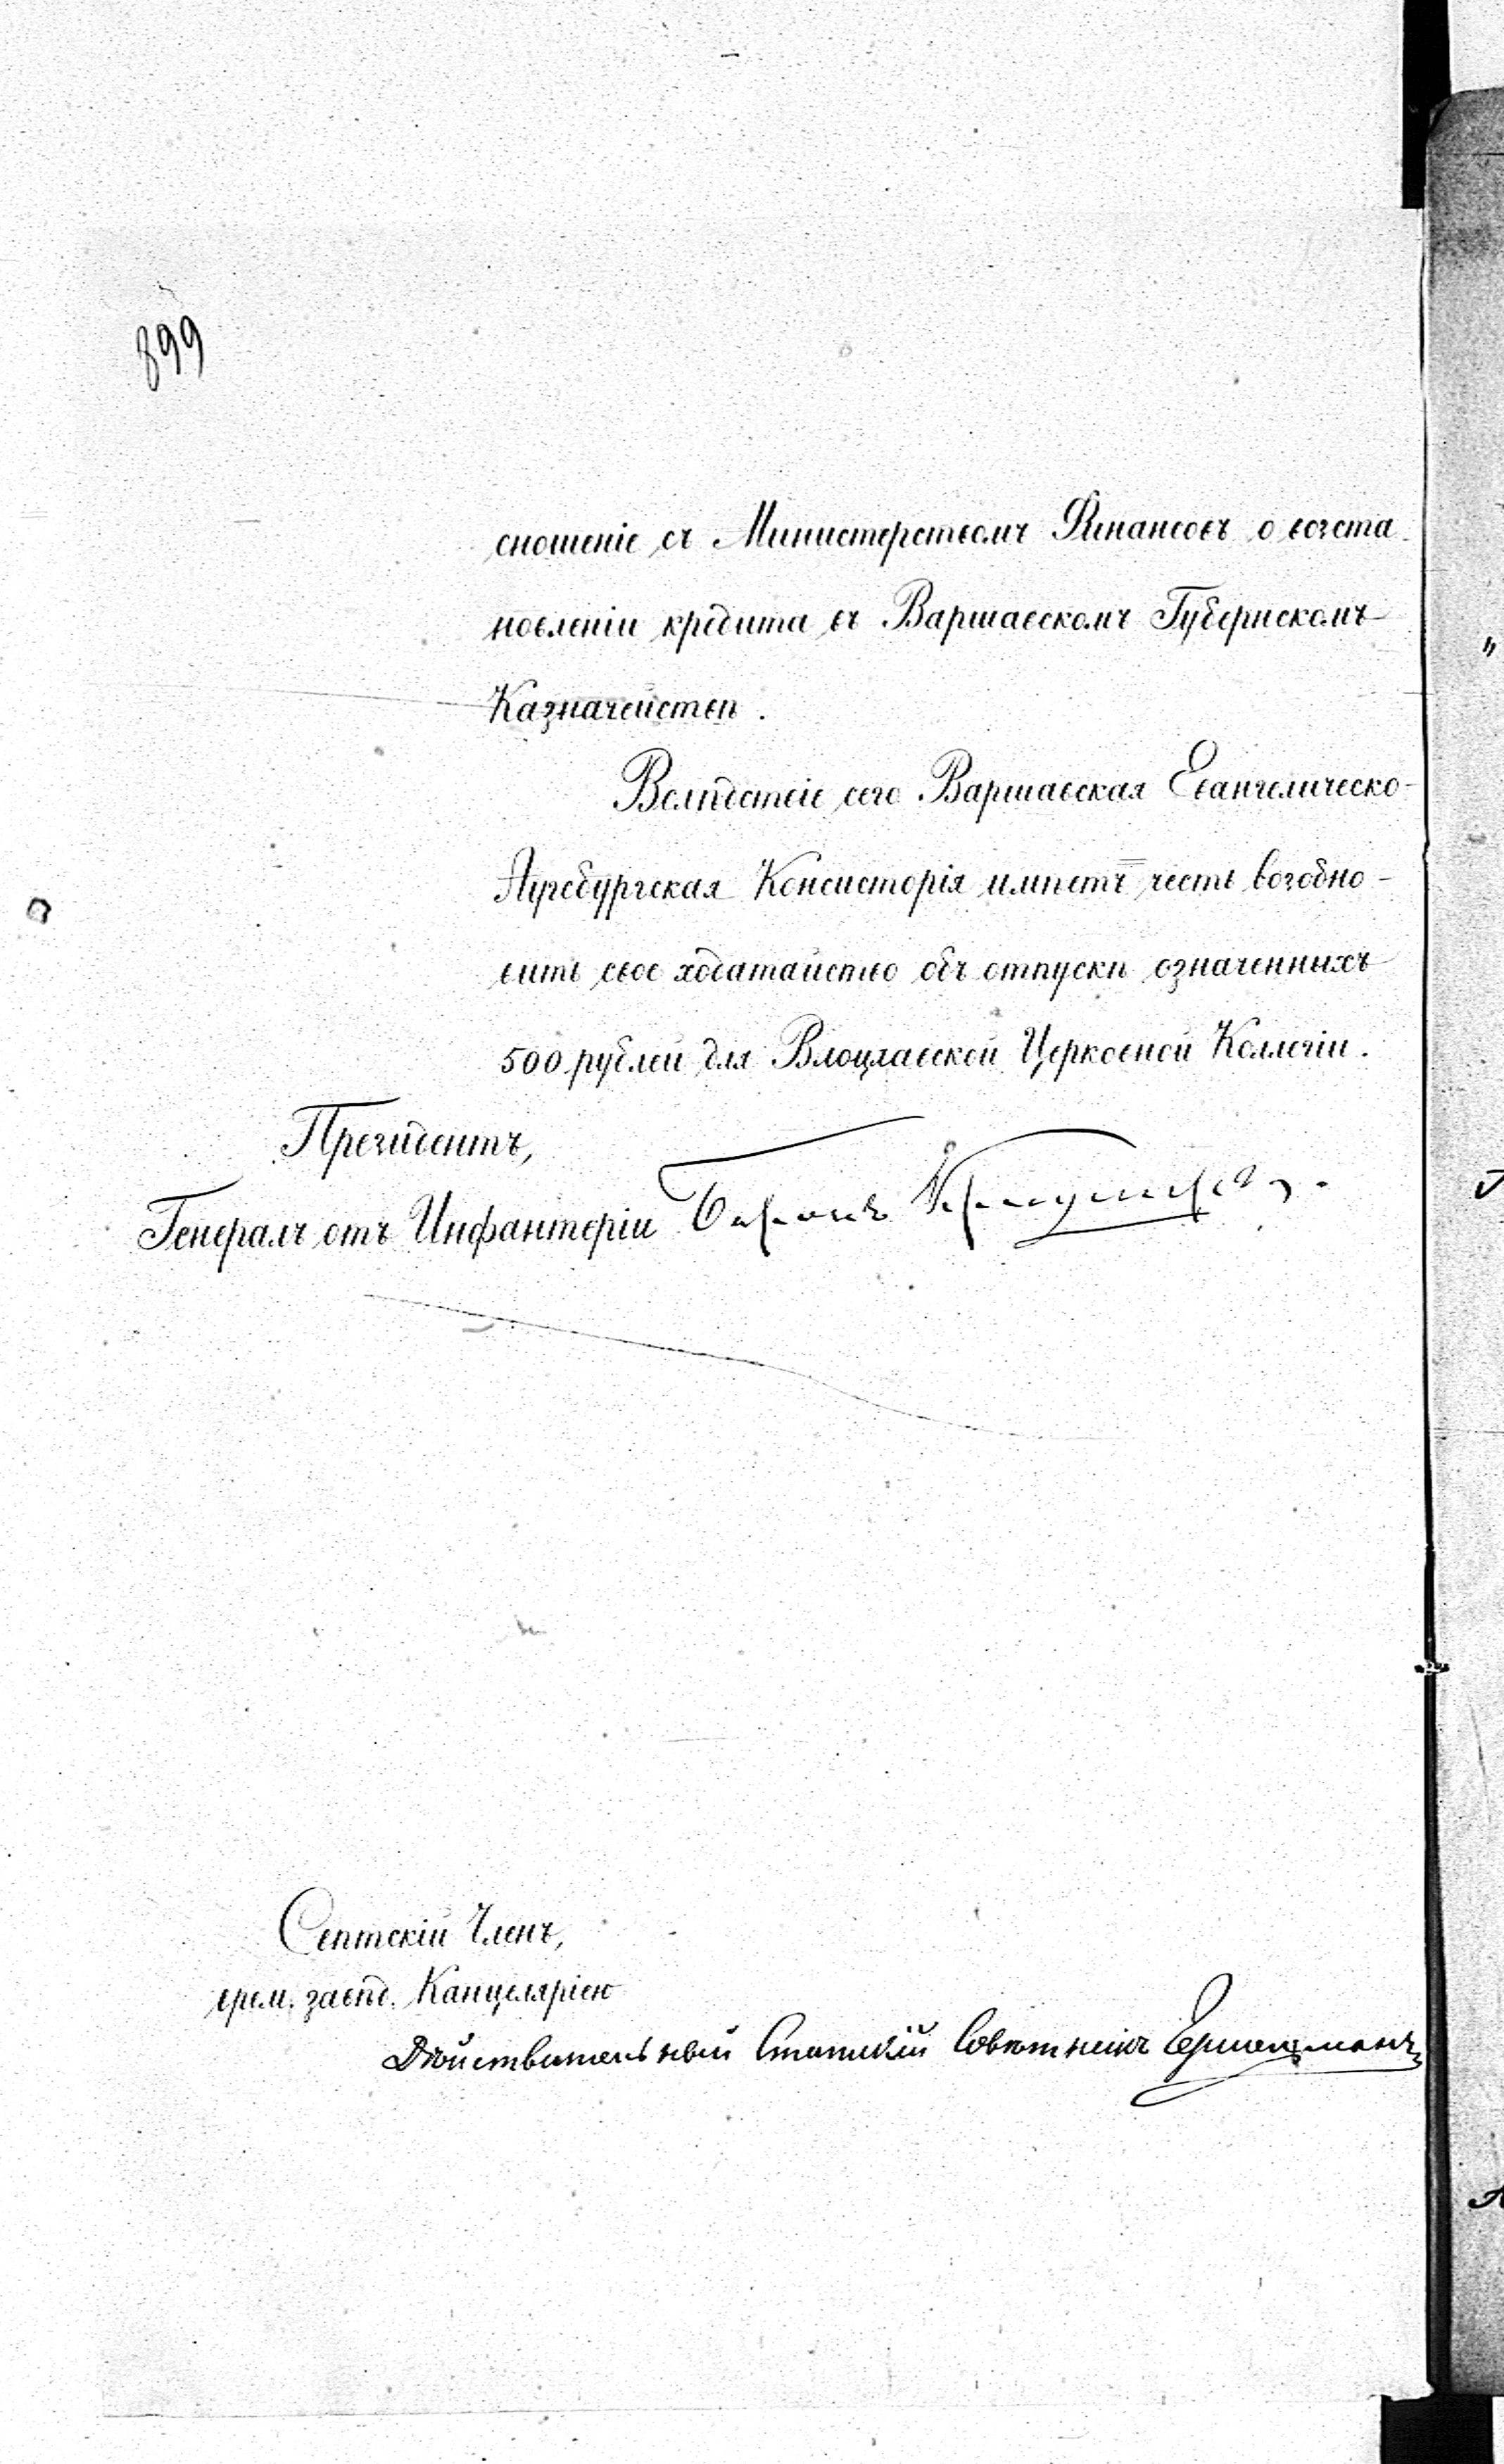 899
сношеніе съ Министерствомъ Финансовъ о возста-
новленіи кредита въ Варшавскомъ Губернскомъ
Казначействѣ.
Вслѣдствіе сего Варшавская Евангелическо-
Аугсбургская Консисторія имѣетъ честь возобно-
вить свое ходатайство объ отпускѣ означенныхъ
500 рублей для Влоцлавской Церковной Коллегіи.
Президентъ,
Генералъ отъ Инфантеріи Баронъ
Свѣтскій Членъ,
врем. завѣд. Канцеляріею
Дѣйствительный Статскій Совѣтникъ